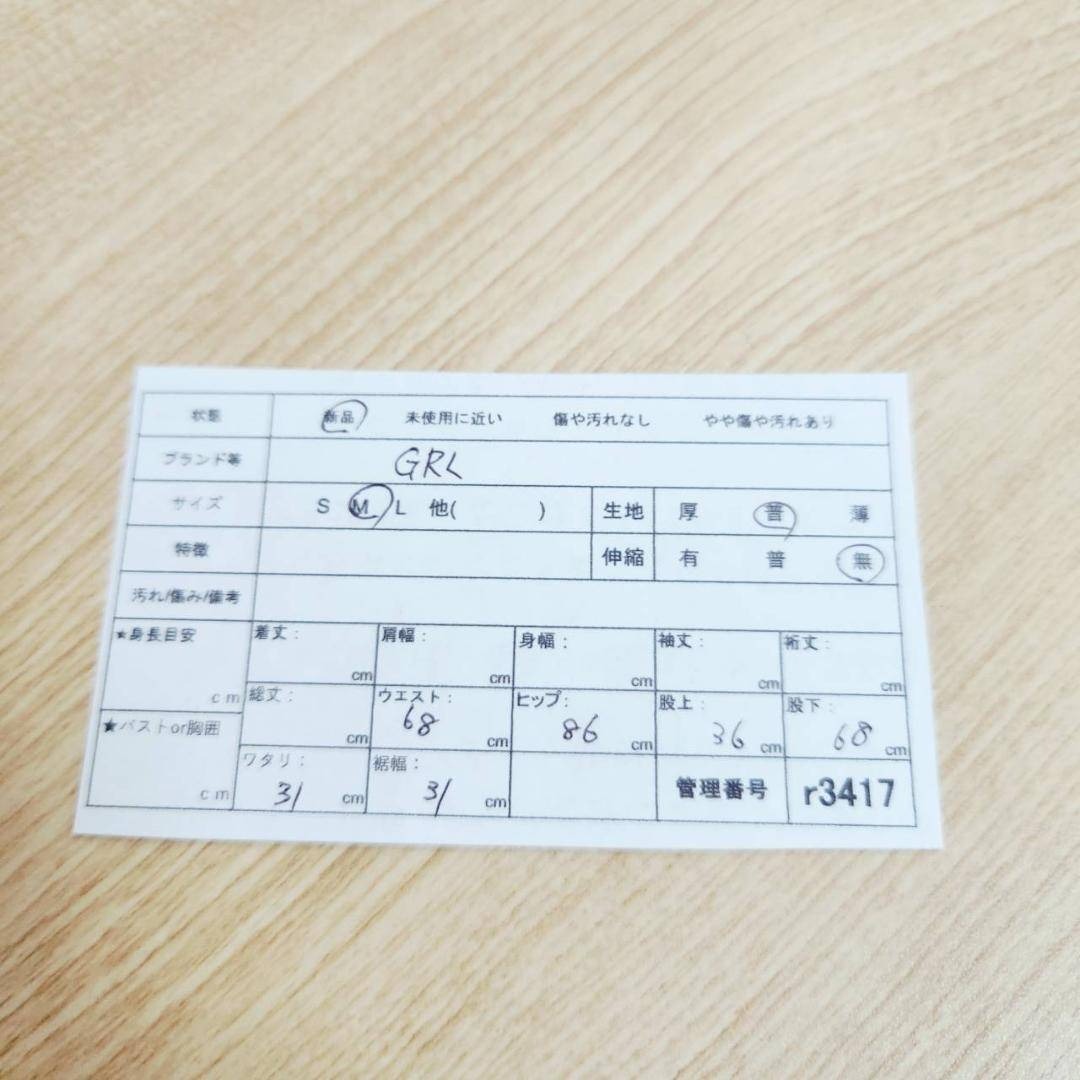 状態 新品 未使用に近い 傷や汚れなし やや傷や汚れあり
ブランド等 GRL
サイズ S M L 他( ) 生地 厚 普 薄
特徴 伸縮 有 普 無
汚れ/傷み/備考
★身長目安 cm 着丈: cm 肩幅: cm 身幅: cm 袖丈: cm 裄丈: cm
総丈: cm ウエスト: 68 cm ヒップ: 86 cm 股上: 36 cm 股下: 68 cm
★バストor胸囲 cm ワタリ: 31 cm 裾幅: 31 cm 管理番号 r3417